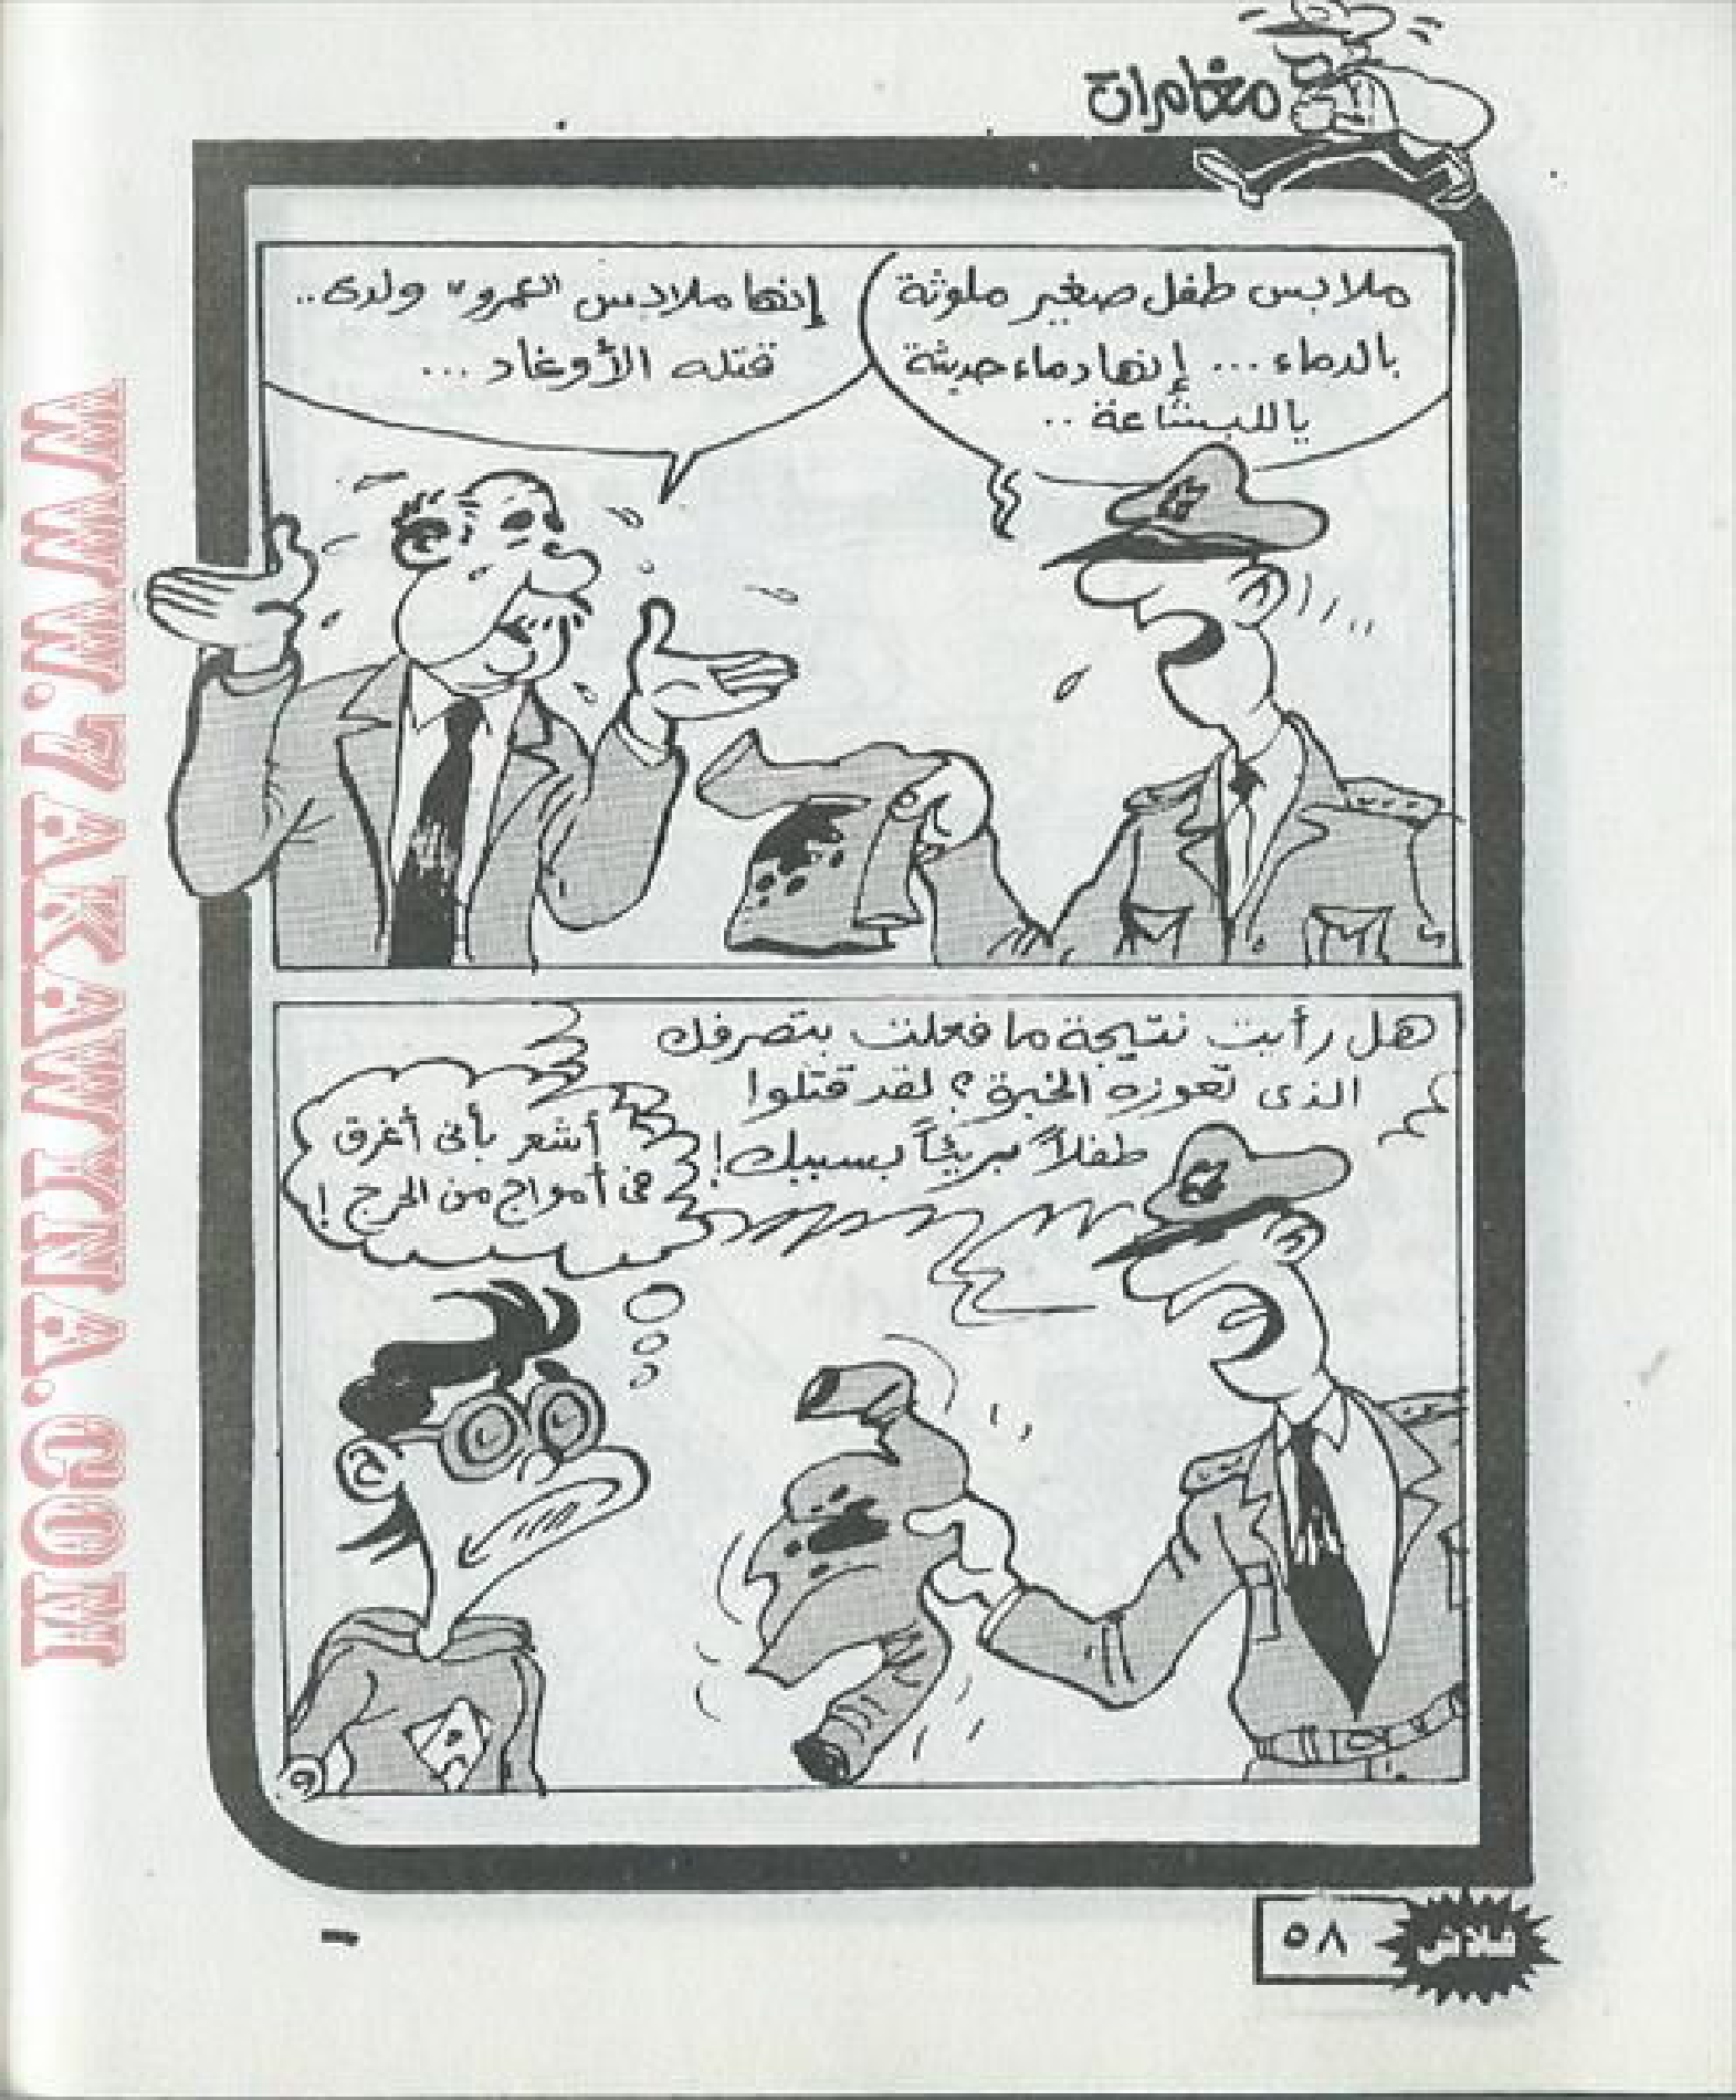 مغامرات
ملابس طفل صغير ملوثة
بالدماء... إنها دماء حديثة
ياللبشاعة..
إنها ملابس "عمرو" ولدى..
قتله الأوغاد...
هل رأيت نتيجة ما فعلت بتصرفك
الذى تعوزه الخبرة؟ لقد قتلوا
طفلاً بريئاً بسببك!
أشعر بأنى أغرق
فى أمواج من الحرج!
فلاش
٥٨
WWW.ZAKAWTNA.COM